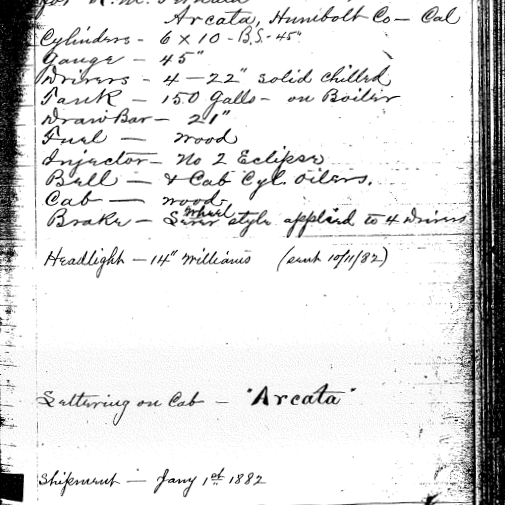 for
Arcata, Humbolt Co - Cal
Cylinders - 6 x 10 - B.S. - 45"
Gauge - 45"
Drivers - 4 - 22" solid chilled
Tank - 150 Galls - on Boiler
Draw Bar - 21"
Fuel - wood
Injector - No 2 Eclipse
Bell - & Cab Cyl. Oilers.
Cab - wood
wheel
Brake - style applied to 4 Drivers
Headlight - 14" Williams (sent 10/11/82)
Lettering on Cab - "Arcata"
Shipment - Jany 1st 1882